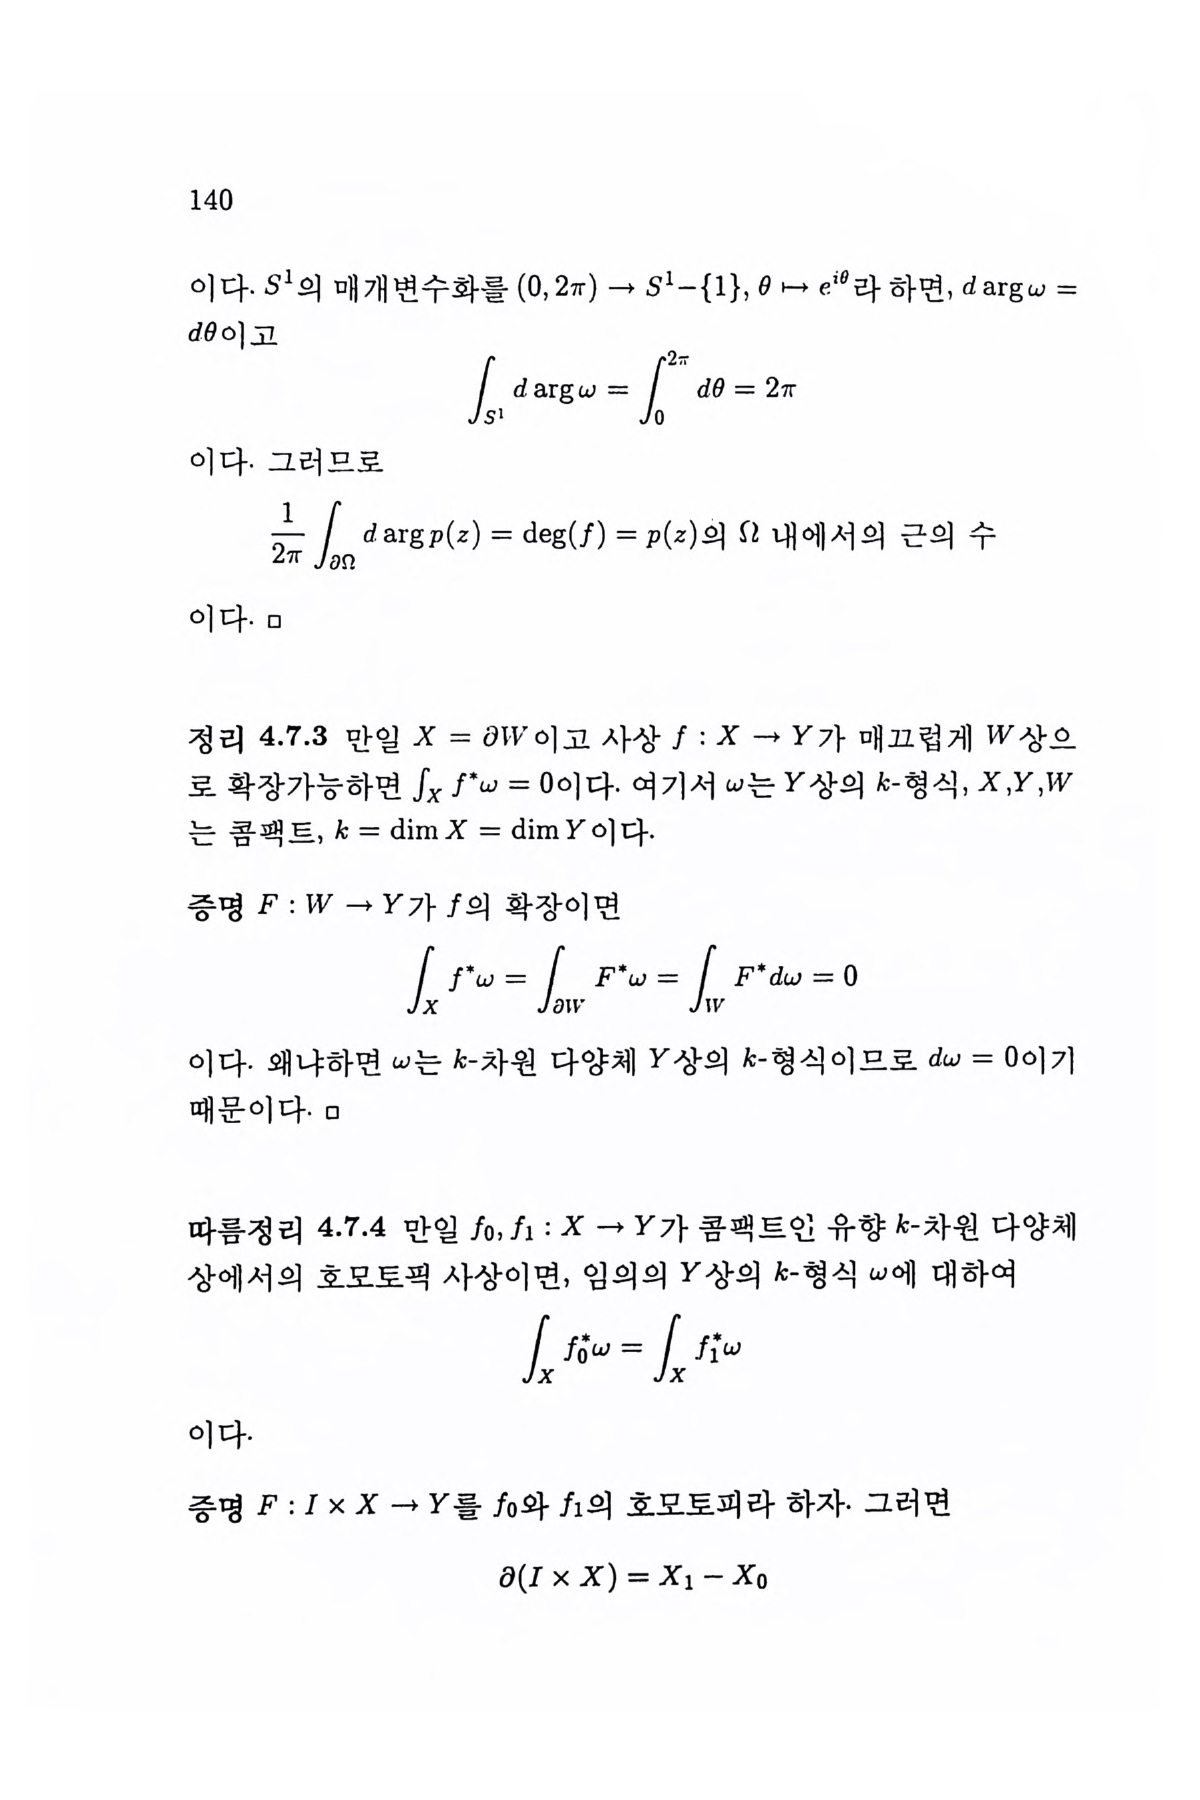 140
이다. $S^1$의 매개변수화를 $(0, 2\pi) \to S^1-\{1\}, \theta \mapsto e^{i\theta}$라 하면, $d \arg \omega =$
$d\theta$이고
$$\int_{S^1} d \arg \omega = \int_0^{2\pi} d\theta = 2\pi$$
이다. 그러므로
$$\frac{1}{2\pi} \int_{\partial\Omega} d \arg p(z) = \deg(f) = p(z)\text{의 } \Omega \text{ 내에서의 근의 수}$$
이다. □
정리 4.7.3 만일 $X = \partial W$이고 사상 $f : X \to Y$가 매끄럽게 $W$상으
로 확장가능하면 $\int_X f^*\omega = 0$이다. 여기서 $\omega$는 $Y$상의 $k$-형식, $X$,$Y$,$W$
는 콤팩트, $k = \dim X = \dim Y$이다.
증명 $F : W \to Y$가 $f$의 확장이면
$$\int_X f^*\omega = \int_{\partial W} F^*\omega = \int_W F^*d\omega = 0$$
이다. 왜냐하면 $\omega$는 $k$-차원 다양체 $Y$상의 $k$-형식이므로 $d\omega = 0$이기
때문이다. □
따름정리 4.7.4 만일 $f_0, f_1 : X \to Y$가 콤팩트인 유향 $k$-차원 다양체
상에서의 호모토픽 사상이면, 임의의 $Y$상의 $k$-형식 $\omega$에 대하여
$$\int_X f_0^*\omega = \int_X f_1^*\omega$$
이다.
증명 $F : I \times X \to Y$를 $f_0$와 $f_1$의 호모토피라 하자. 그러면
$$\partial(I \times X) = X_1 - X_0$$